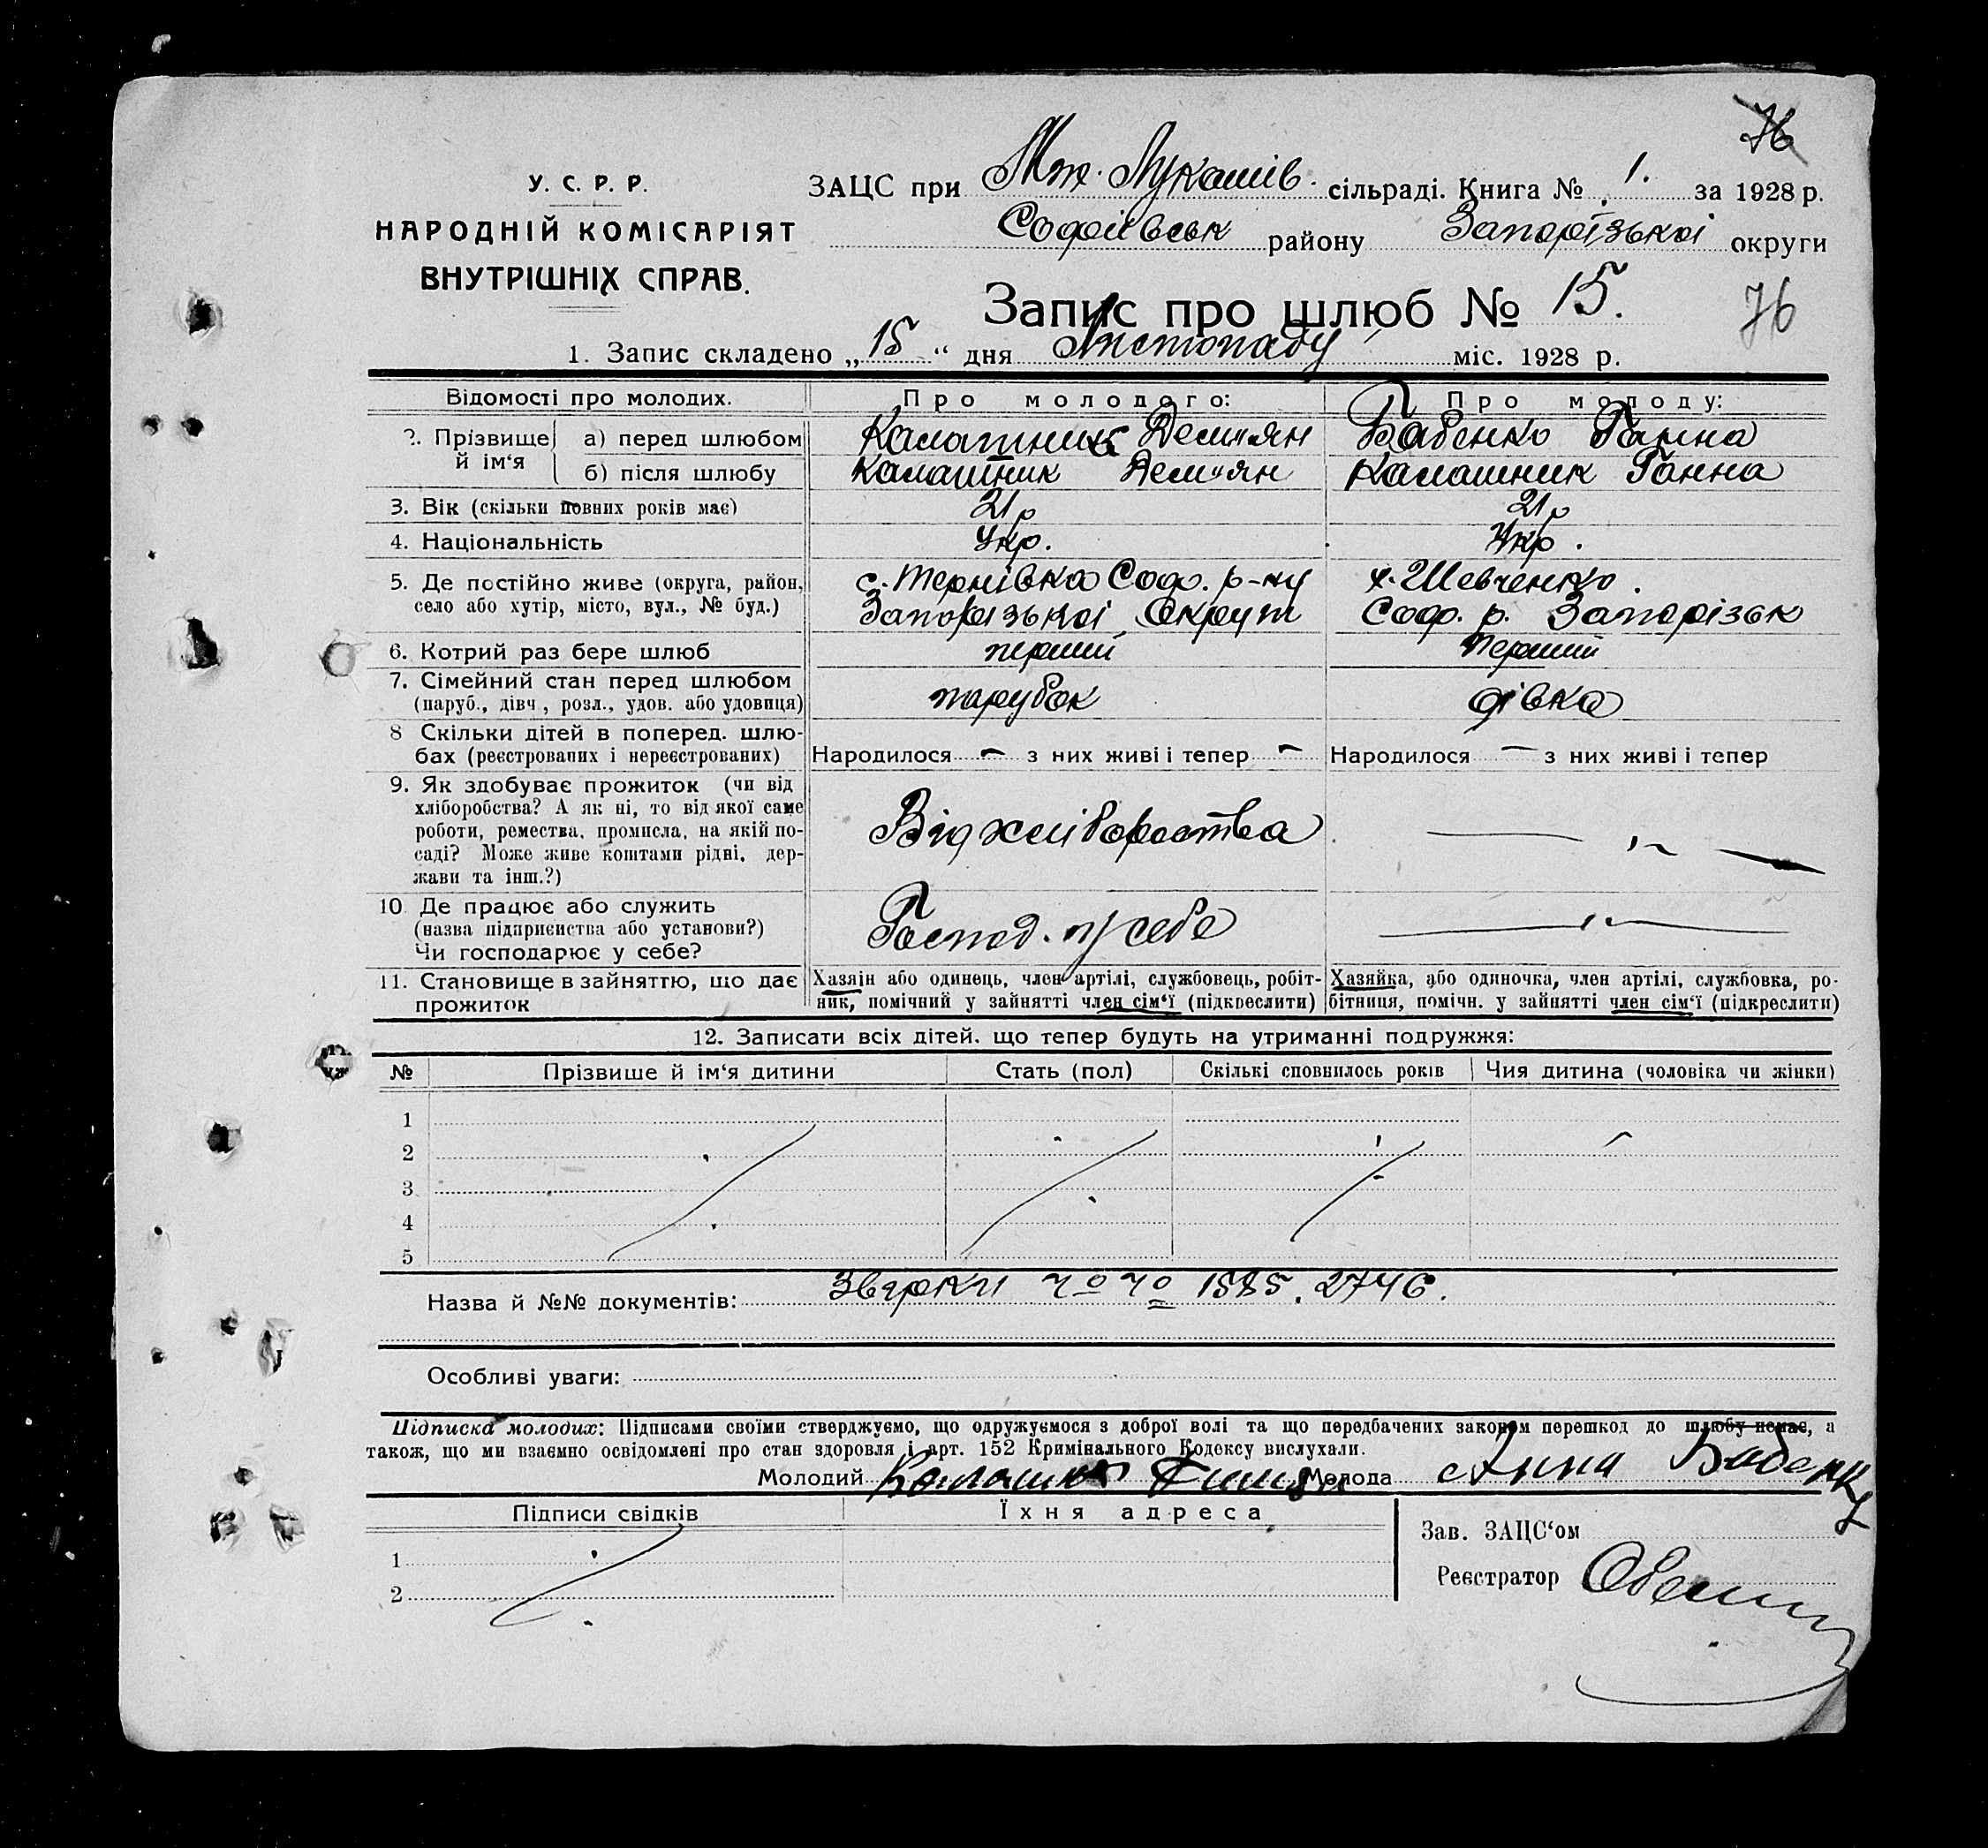 76
У. С. Р. Р.
НАРОДНІЙ КОМІСАРІЯТ
ВНУТРІШНІХ СПРАВ.
ЗАЦС при Мт. Лукашів. сільраді. Книга № 1. за 1928 р.
Софіївськ району Запорізької округи
Запис про шлюб № 15.
76
1. Запис складено „15“ дня Листопаду міс. 1928 р.
Відомості про молодих. Про молодого: Про молоду:
2. Прізвище й ім‘я а) перед шлюбом Калашник Демиян Бабенко Ганна
б) після шлюбу Калашник Демиян Калашник Ганна
3. Вік (скільки повних років має) 21 р 21 р
4. Національність Укр. Укр.
5. Де постійно живе (округа, район, с. Тернівка Соф. р-ну х. Шевченко.
село або хутір, місто, вул., № буд.) Запорізької Округи Соф. р. Запорізьк
6. Котрий раз бере шлюб перший перший
7. Сімейний стан перед шлюбом
(паруб., дівч., розл., удов. або удовиця) парубок дівка
8 Скільки дітей в поперед. шлю-
бах (реєстрованих і нереєстрованих) Народилося — з них живі і тепер — Народилося — з них живі і тепер
9. Як здобуває прожиток (чи від
хліборобства? А як ні, то від якої саме
роботи, ремества, промисла, на якій по-
саді? Може живе коштами рідні, дер-
жави та інш.?)
Від хліборобства — „ —
10 Де працює або служить
(назва підприємства або установи?)
Чи господарює у себе?
Господ. у себе — „ —
11. Становище в зайняттю, що дає
прожиток
Хазяін або одинець, член артілі, службовець, робіт-
ник, помічний у зайнятті член сім‘ї (підкреслити)
Хазяйка, або одиночка, член артілі, службовка, ро-
бітниця, помічн. у зайнятті член сім‘ї (підкреслити)
12. Записати всіх дітей. що тепер будуть на утриманні подружжя:
№ Прізвише й ім‘я дитини Стать (пол) Скількі сповнилось років Чия дитина (чоловіка чи жінки)
1
2
3
4
5
Назва й №№ документів: 1585. 2746.
Особливі уваги:
Підписка молодих: Підписами своїми стверджуємо, що одружуємося з доброї волі та що передбачених законом перешкод до шлюбу немає, а
також, що ми взаємно освідомлені про стан здоровля і арт. 152 Кримінального Кодексу вислухали.
Молодий Калашник Молода Анна Бабенко
Підписи свідків Їхня адреса
1
2
Зав. ЗАЦС‘ом
Реєстратор